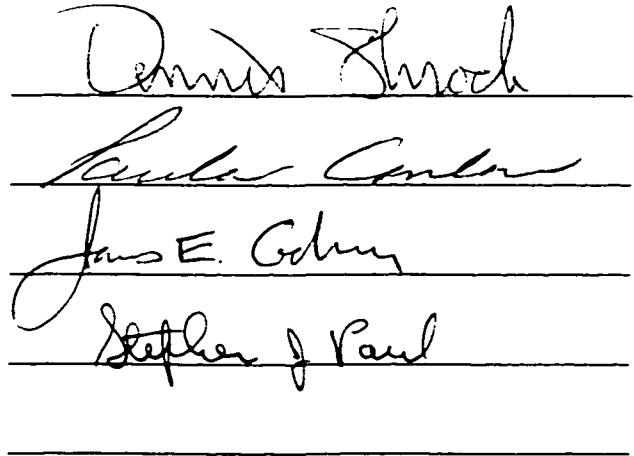 Dennis Shrock
Paula Conlon
James E. 
Stephen J Paul